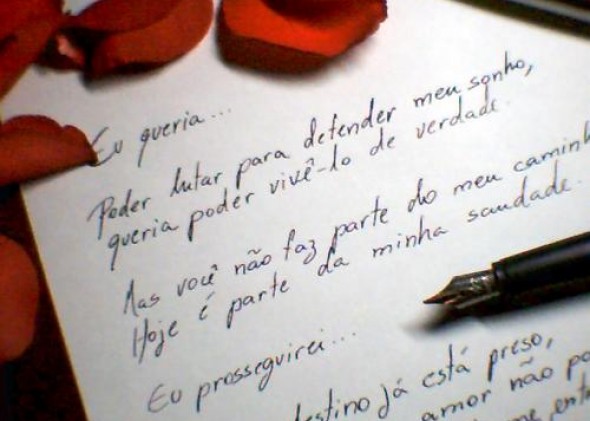 Eu queria...
Poder lutar para defender meu sonho,
queria poder vivê-lo de verdade.
Mas você não faz parte do meu
Hoje é parte da minha saudade.
Eu prosseguirei...
já está preso,
amor não